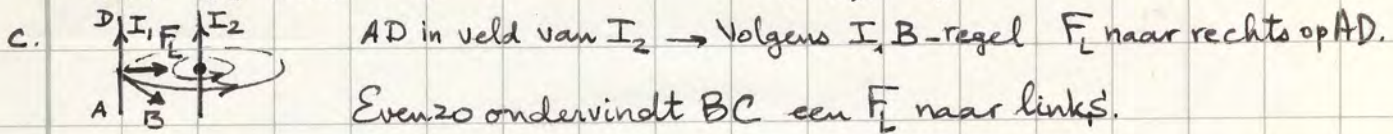 c. D I₁ F_L I₂ AD in veld van I₂ → Volgens I,B-regel F_L naar rechts op AD.
A B Evenzo ondervindt BC een F_L naar links.